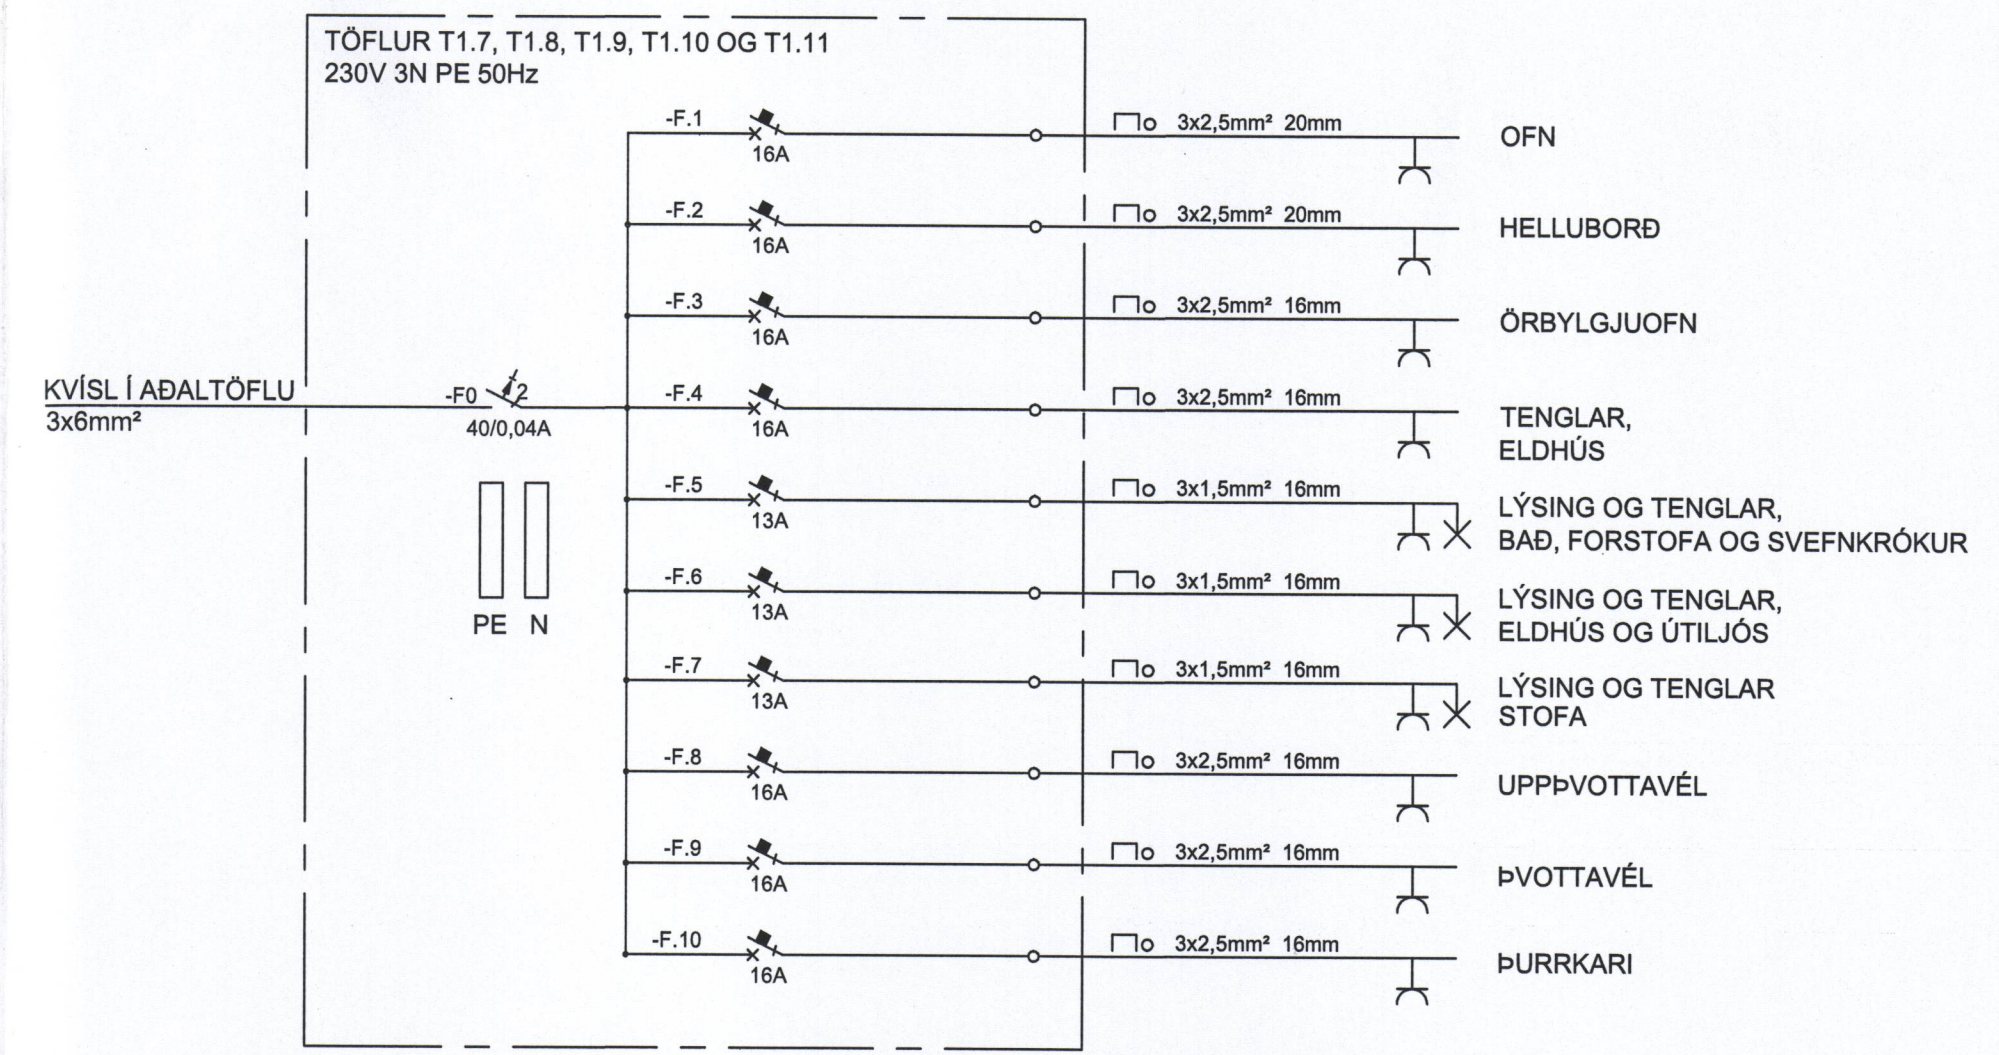 TÖFLUR T1.7, T1.8, T1.9, T1.10 OG T1.11
230V 3N PE 50Hz
-F.1
16A
3x2,5mm² 20mm
OFN
-F.2
16A
3x2,5mm² 20mm
HELLUBORÐ
-F.3
16A
3x2,5mm² 16mm
ÖRBYLGJUOFN
KVÍSL Í AÐALTÖFLU
3x6mm²
-F0
2
40/0,04A
-F.4
16A
3x2,5mm² 16mm
TENGLAR,
ELDHÚS
-F.5
13A
3x1,5mm² 16mm
LÝSING OG TENGLAR,
BAÐ, FORSTOFA OG SVEFNKRÓKUR
PE N
-F.6
13A
3x1,5mm² 16mm
LÝSING OG TENGLAR,
ELDHÚS OG ÚTILJÓS
-F.7
13A
3x1,5mm² 16mm
LÝSING OG TENGLAR
STOFA
-F.8
16A
3x2,5mm² 16mm
UPPÞVOTTAVÉL
-F.9
16A
3x2,5mm² 16mm
ÞVOTTAVÉL
-F.10
16A
3x2,5mm² 16mm
ÞURRKARI